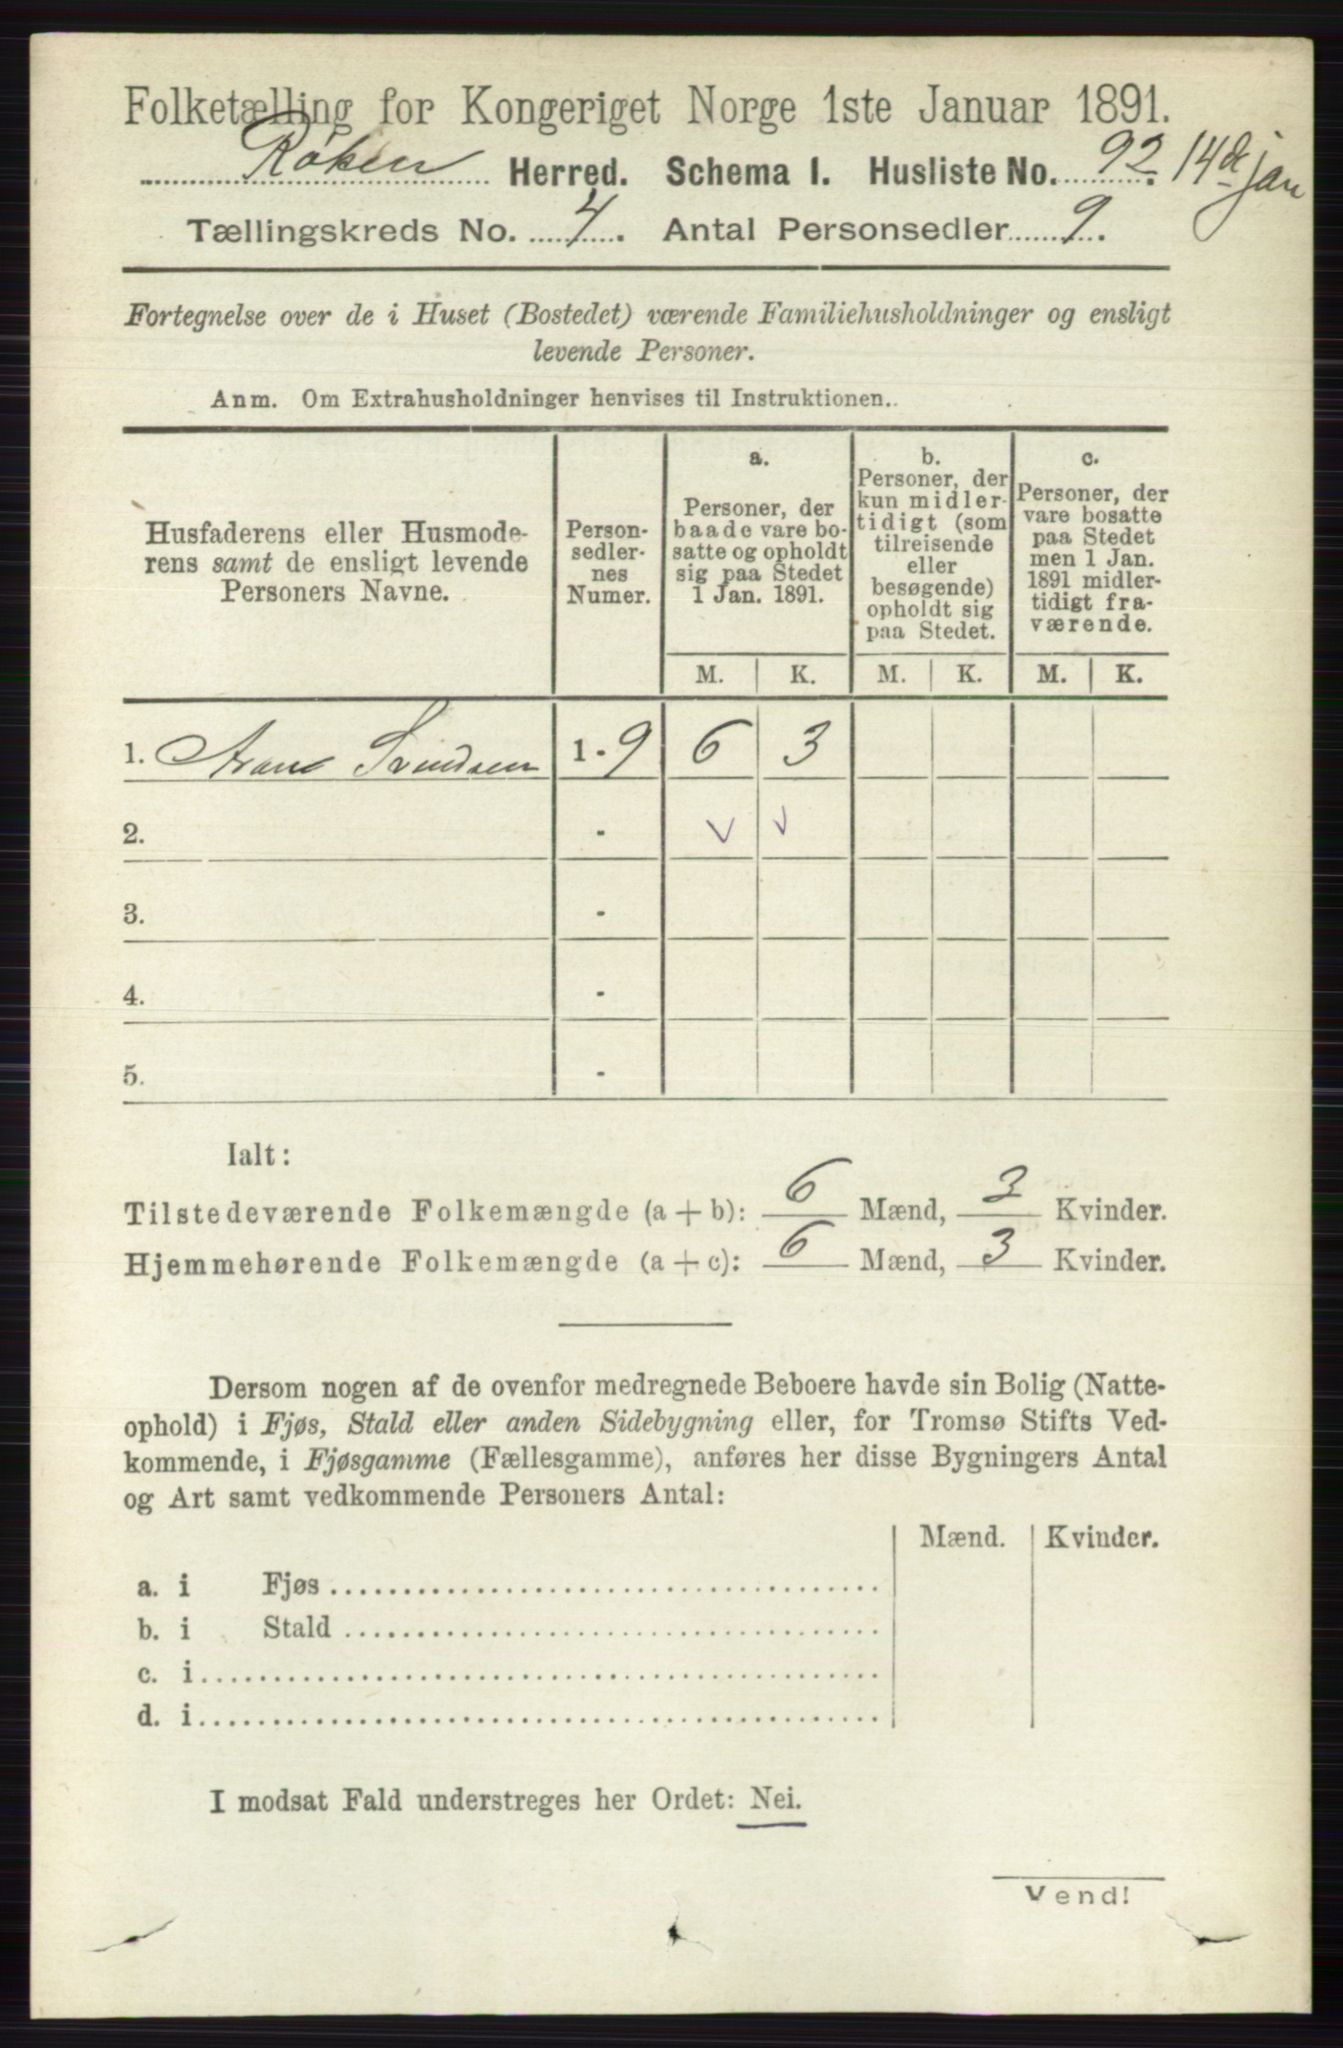 Folketælling for Kongeriget Norge 1ste Januar 1891.
Røken Herred. Schema I. Husliste No. 92. 14de jan
Tællingskreds No. 4. Antal Personsedler 9.
Fortegnelse over de i Huset (Bostedet) værende Familiehusholdninger og ensligt
levende Personer.
Anm. Om Extrahusholdninger henvises til Instruktionen.
Husfaderens eller Husmode-
rens samt de ensligt levende
Personers Navne.
Person-
sedler-
nes
Numer.
a.
Personer, der
baade vare bo-
satte og opholdt
sig paa Stedet
1 Jan. 1891.
b.
Personer, der
kun midler-
tidigt (som
tilreisende
eller
besøgende)
opholdt sig
paa Stedet.
c.
Personer, der
vare bosatte
paa Stedet
men 1 Jan.
1891 midler-
tidigt fra-
værende.
M. K. M. K. M. K.
1. Svendsen 1 - 9 6 3
2. - v v
3. -
4. -
5. -
Ialt:
Tilstedeværende Folkemængde (a + b): 6 Mænd, 3 Kvinder.
Hjemmehørende Folkemængde (a + c): 6 Mænd, 3 Kvinder.
Dersom nogen af de ovenfor medregnede Beboere havde sin Bolig (Natte-
ophold) i Fjøs, Stald eller anden Sidebygning eller, for Tromsø Stifts Ved-
kommende, i Fjøsgamme (Fællesgamme), anføres her disse Bygningers Antal
og Art samt vedkommende Personers Antal:
Mænd. Kvinder.
a. i Fjøs
b. i Stald
c. i
d. i
I modsat Fald understreges her Ordet: Nei.
Vend!